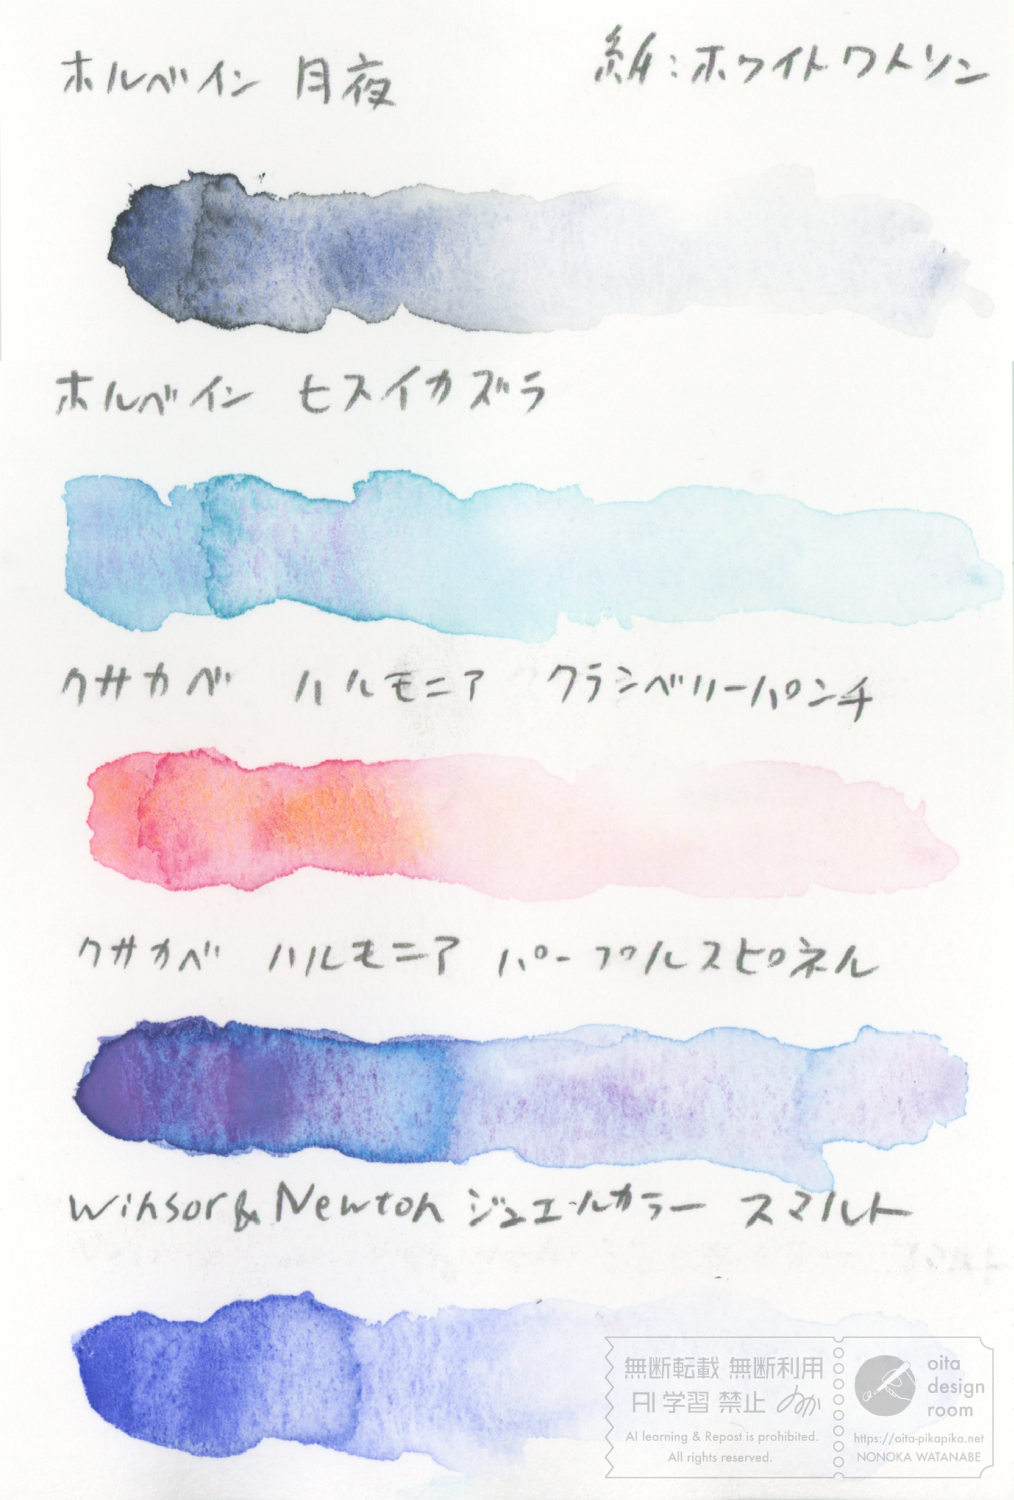 ホルベイン 月夜
紙:ホワイトワトソン
ホルベイン ヒスイカズラ
クサカベ ハルモニア クランベリーパンチ
クサカベ ハルモニア パープルスピネル
Winsor&Newton ジュエルカラー スマルト
無断転載 無断利用
AI 学習 禁止
AI learning & Repost is prohibited.
All rights reserved.
oita
design
room
https://oita-pikapika.net
NONOKA WATANABE